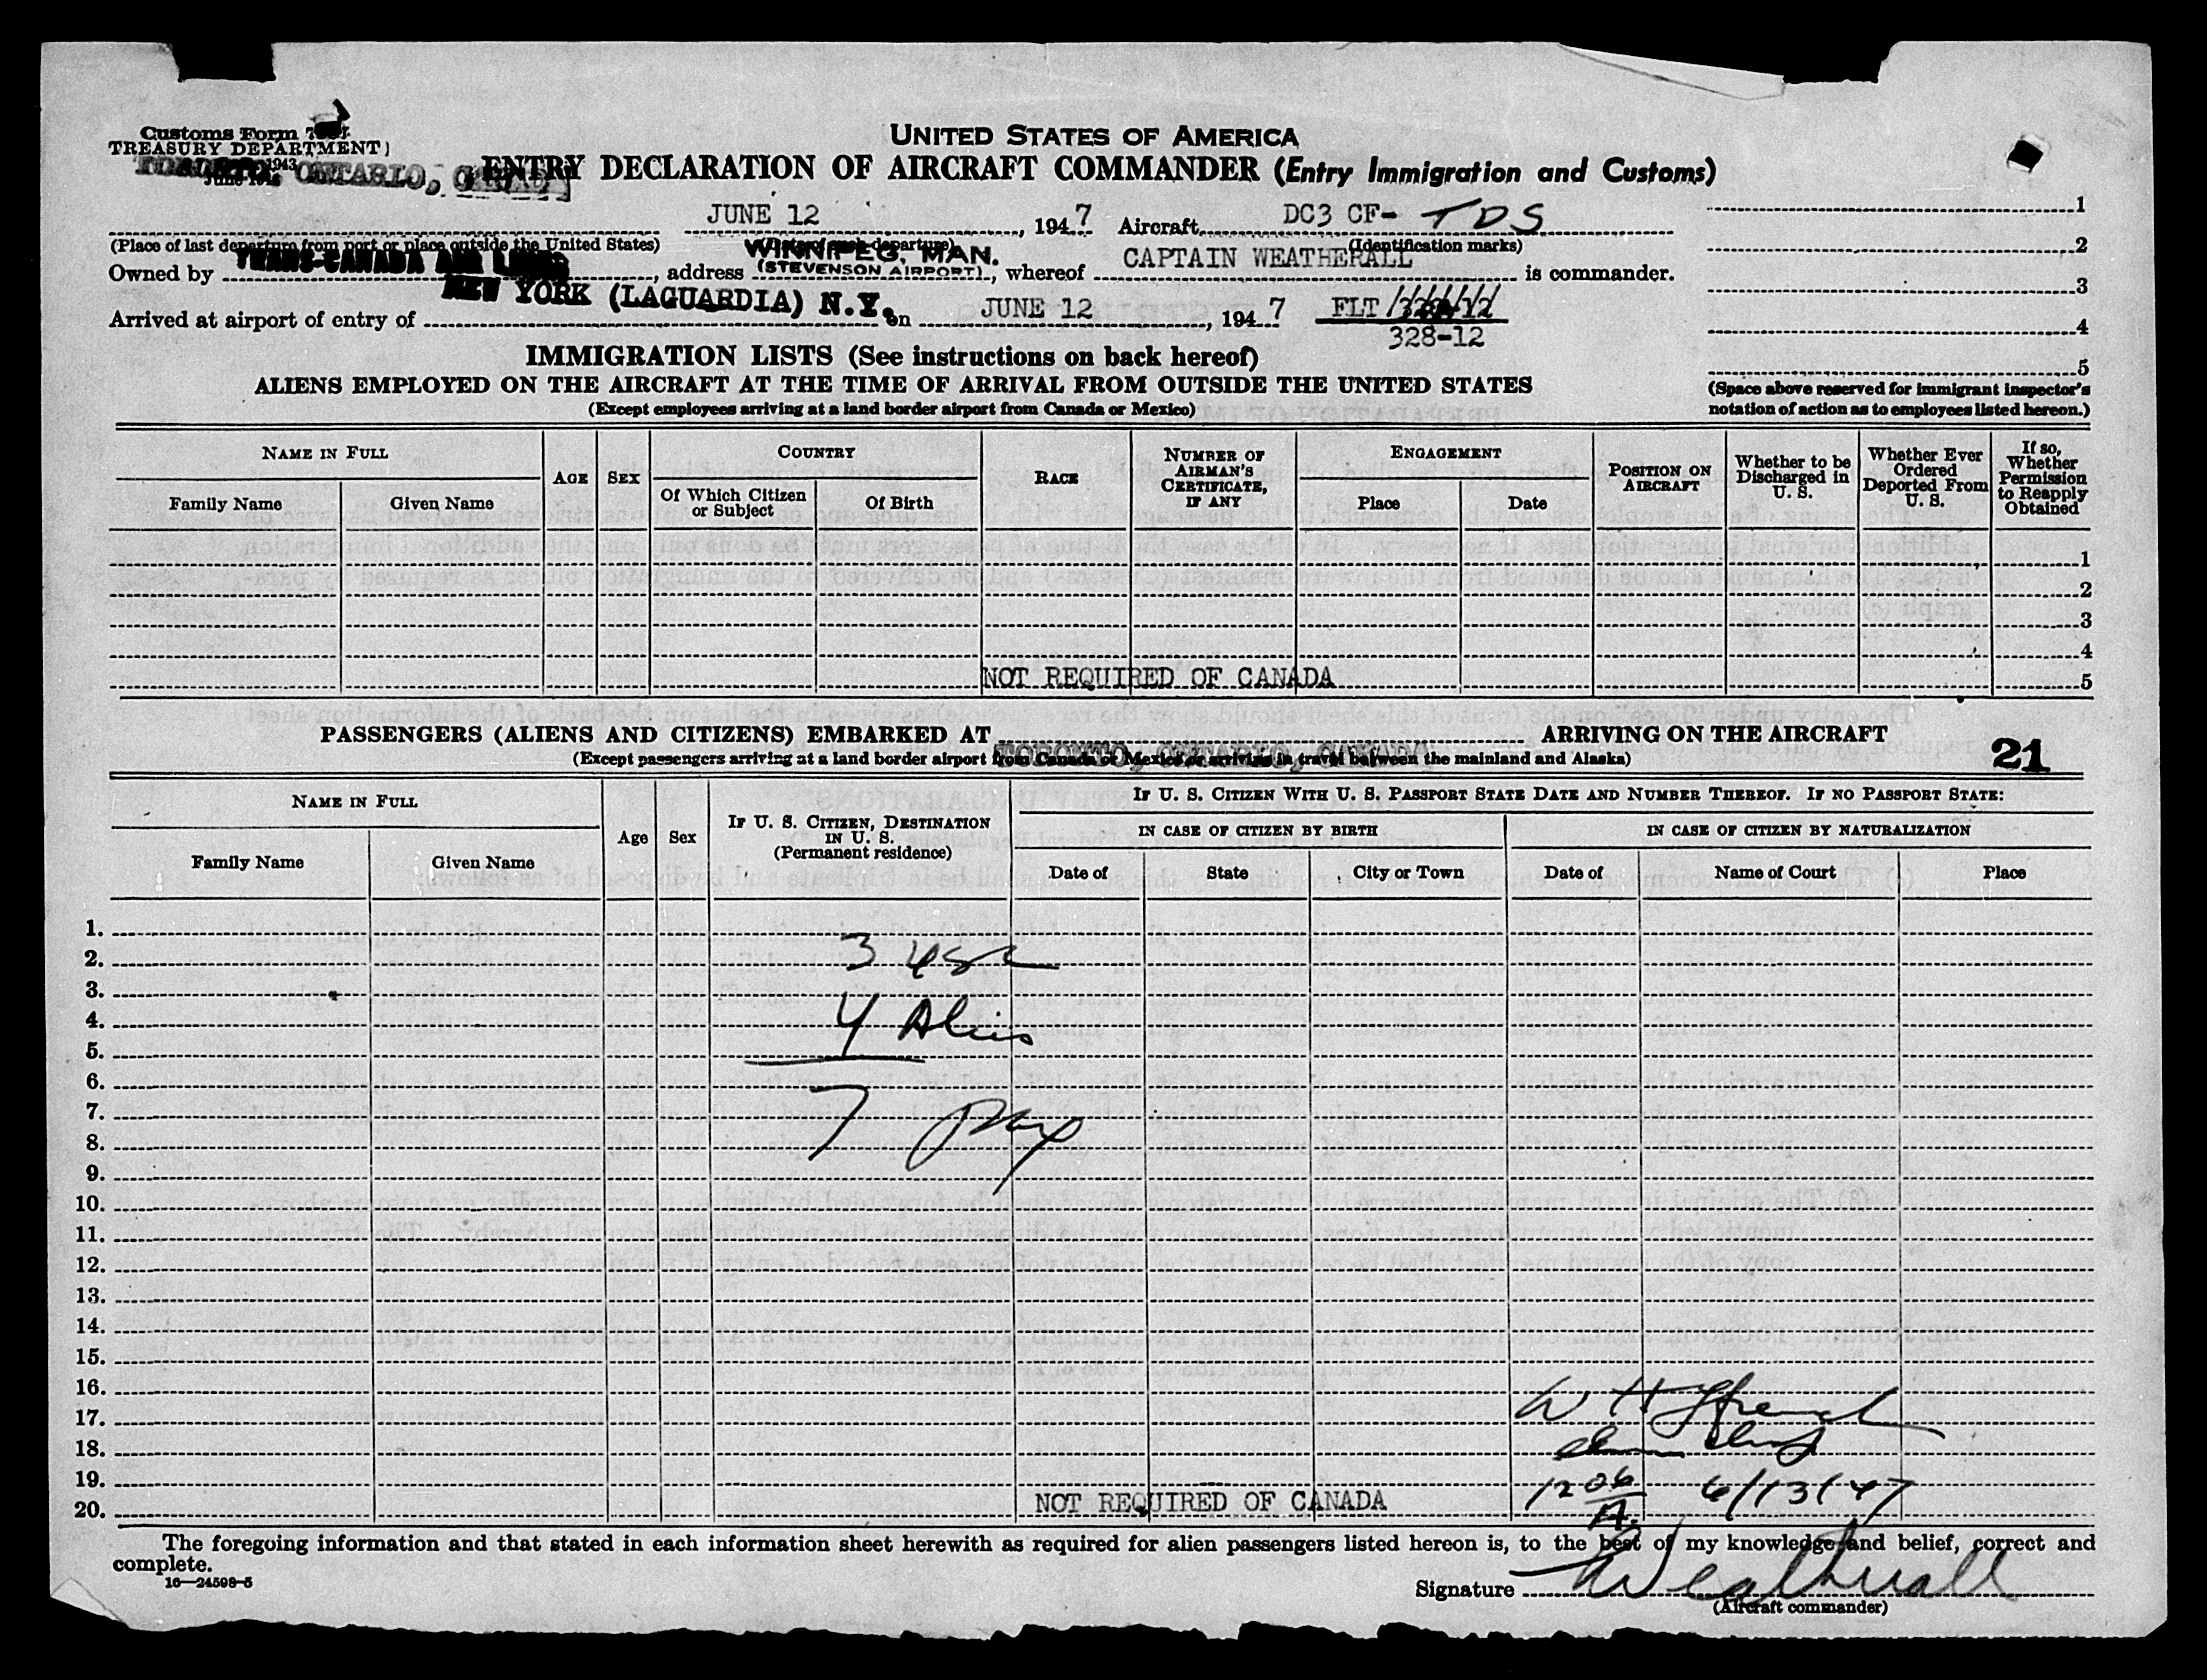 UNITED STATES OF AMERICA
Customs Form
TREASURY DEPARTMENT
1943
TORONTO, ONTARIO, CANADA
ENTRY DECLARATION OF AIRCRAFT COMMANDER (Entry Immigration and Customs)
JUNE 12, 1947 Aircraft DC3 CF- TDS
(Place of last departure from port or place outside the United States) (Date of such departure) (Identification marks)
Owned by TRANS-CANADA AIR LINES, address WINNIPEG, MAN. (STEVENSON AIRPORT), whereof CAPTAIN WEATHERALL is commander.
Arrived at airport of entry of NEW YORK (LAGUARDIA) N.Y. on JUNE 12, 1947 FLT
328-12
1
2
3
4
5
(Space above reserved for immigrant inspector's
notation of action as to employees listed hereon.)
IMMIGRATION LISTS (See instructions on back hereof)
ALIENS EMPLOYED ON THE AIRCRAFT AT THE TIME OF ARRIVAL FROM OUTSIDE THE UNITED STATES
(Except employees arriving at a land border airport from Canada or Mexico)
NAME IN FULL
Family Name
Given Name
AGE
SEX
COUNTRY
Of Which Citizen
or Subject
Of Birth
RACE
NUMBER OF
AIRMAN'S
CERTIFICATE,
IF ANY
ENGAGEMENT
Place
Date
POSITION ON
AIRCRAFT
Whether to be
Discharged in
U. S.
Whether Ever
Ordered
Deported From
U. S.
If so,
Whether
Permission
to Reapply
Obtained
1
2
3
4
NOT REQUIRED OF CANADA 5
PASSENGERS (ALIENS AND CITIZENS) EMBARKED AT TORONTO, ONTARIO, CANADA ARRIVING ON THE AIRCRAFT
(Except passengers arriving at a land border airport from Canada or Mexico or arriving in travel between the mainland and Alaska)
21
NAME IN FULL
Family Name
Given Name
Age
Sex
IF U. S. CITIZEN, DESTINATION
IN U. S.
(Permanent residence)
IF U. S. CITIZEN WITH U. S. PASSPORT STATE DATE AND NUMBER THEREOF. IF NO PASSPORT STATE:
IN CASE OF CITIZEN BY BIRTH
IN CASE OF CITIZEN BY NATURALIZATION
Date of
State
City or Town
Date of
Name of Court
Place
1.
2. 3 USC
3.
4. 4 Aliens
5.
6.
7. 7 Pax
8.
9.
10.
11.
12.
13.
14.
15.
16.
17. W H French
18.
19. 12 06 A. 6/13/47
20. NOT REQUIRED OF CANADA
The foregoing information and that stated in each information sheet herewith as required for alien passengers listed hereon is, to the best of my knowledge and belief, correct and
complete.
16—24598-5
Signature Weatherall
(Aircraft commander)